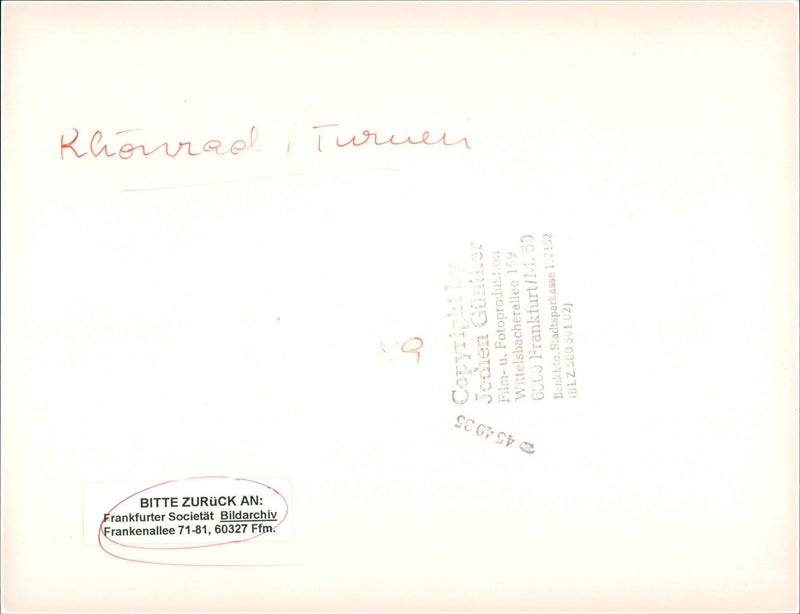 Rhönrad / Turnen
9
Copyright by
Jochen Günther
Film- u. Fotoproduktion
Wittelsbacherallee 159
6000 Frankfurt/M. 60
Bankkto. Stadtsparkasse 102152
(BLZ 500 501 02)
45 49 35
BITTE ZURüCK AN:
Frankfurter Societät Bildarchiv
Frankenallee 71-81, 60327 Ffm.